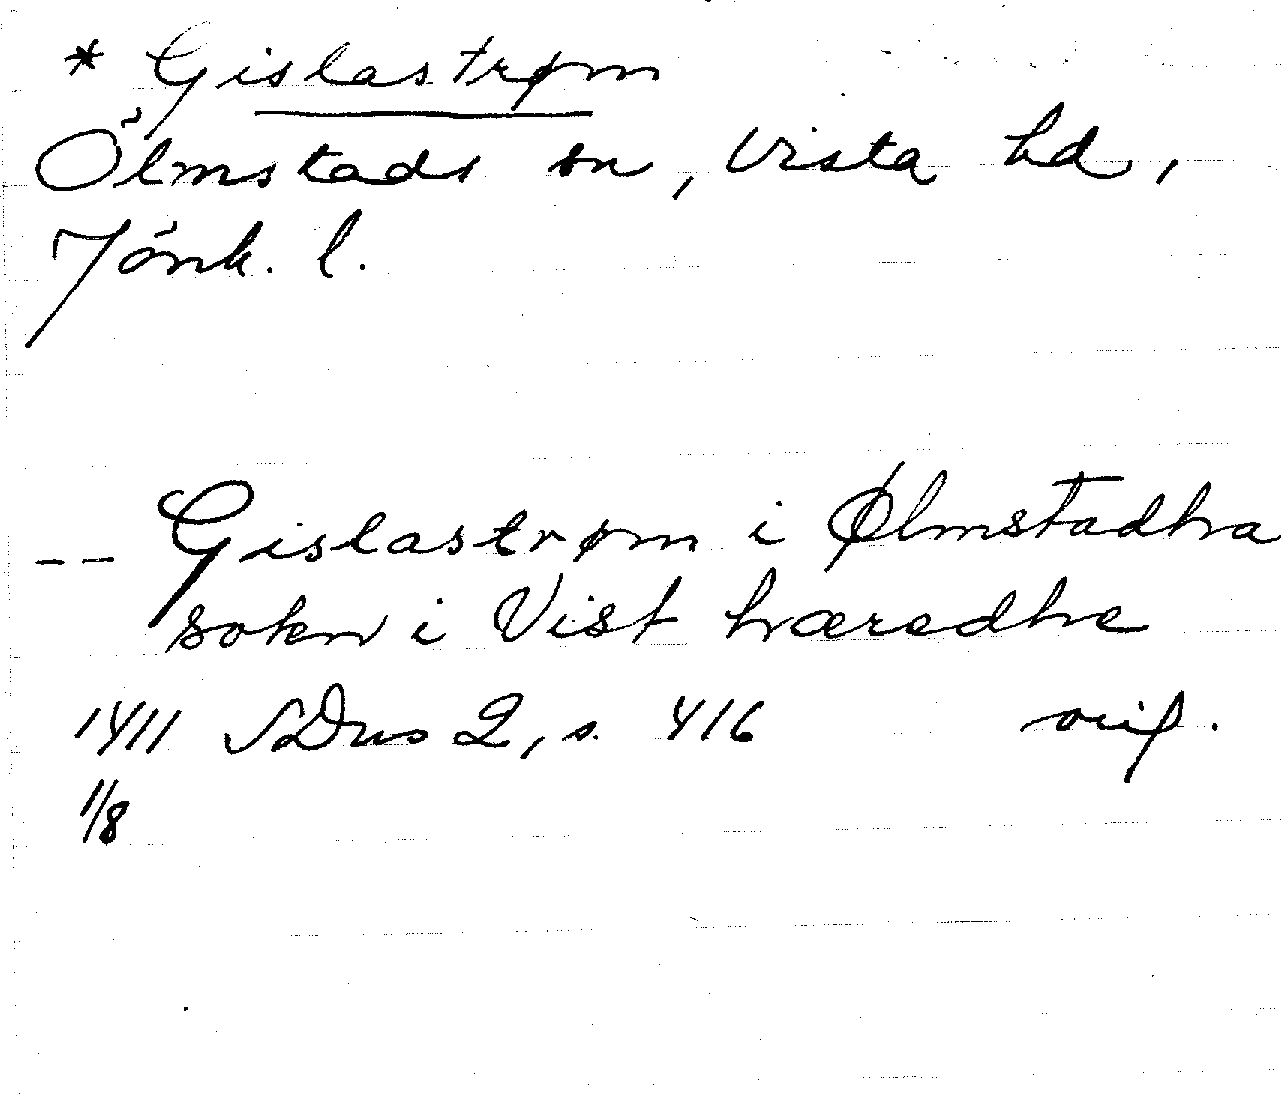 * Gislastrøm
Ölmstads sn, Vista hd,
Jönk. l.
-- Gislastrøm i Ølmstadhra
sokn i Vist hæredhe
1411 SDns 2, s. 416 orig.
1/8